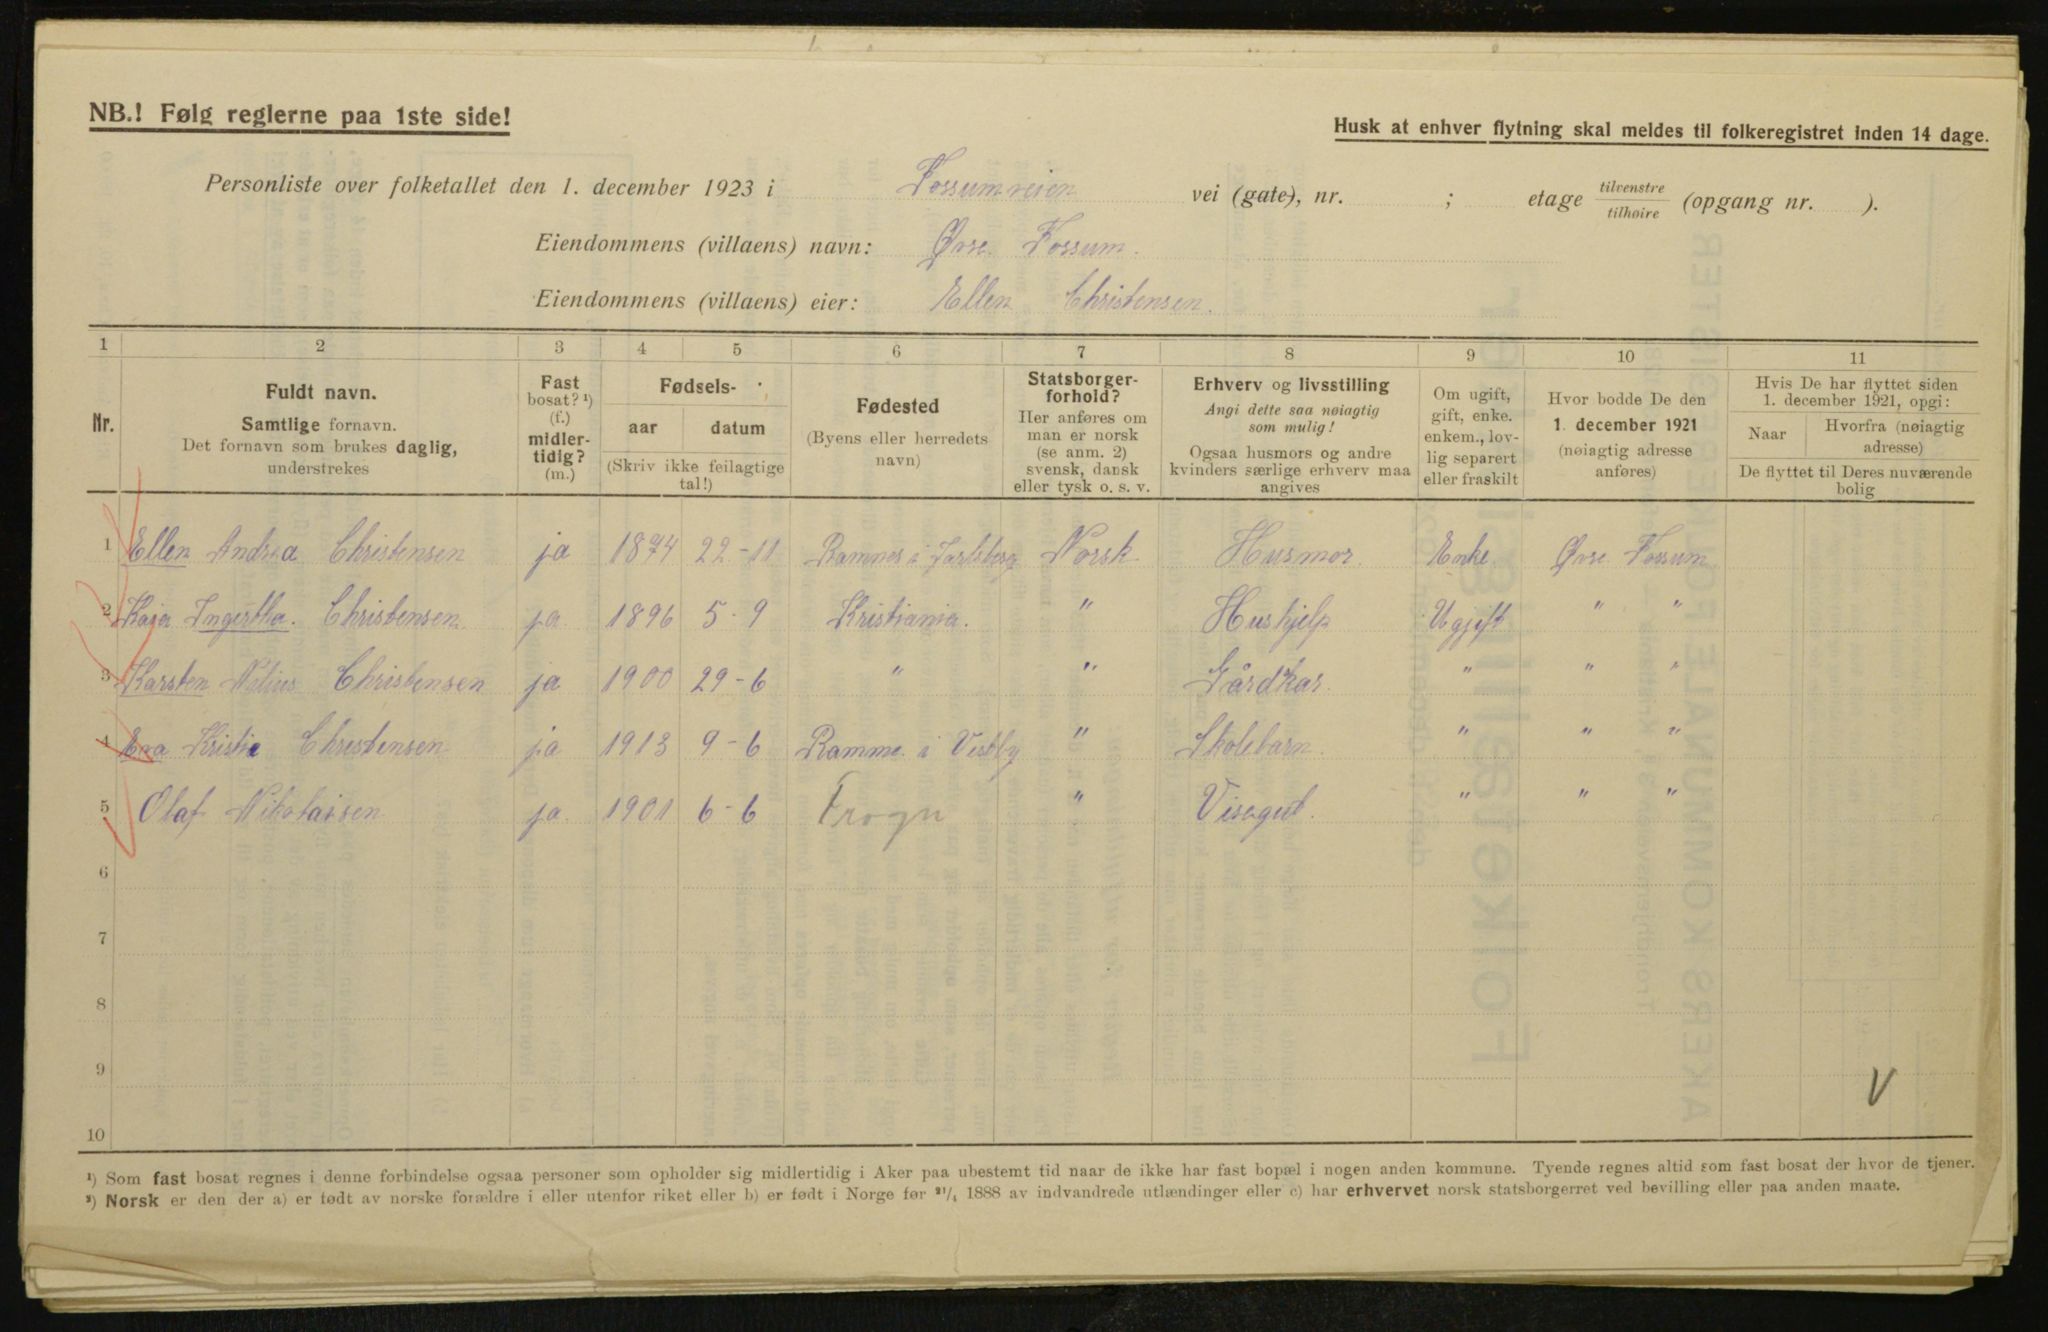 NB.! Følg reglerne paa 1ste side!
Husk at enhver flytning skal meldes til folkeregistret inden 14 dage.
Personliste over folketallet den 1. december 1923 i Fossumveien vei (gate), nr. ; etage tilvenstre tilhøire (opgang nr. ).
Eiendommens (villaens) navn: Øvre Fossum.
Eiendommens (villaens) eier: Ellen Christensen.
1 2 3 4 5 6 7 8 9 10 11
Nr.
Fuldt navn.
Samtlige fornavn.
Det fornavn som brukes daglig,
understrekes
Fast
bosat? ¹)
(f.)
midler-
tidig?
(m.)
Fødsels-
aar datum
(Skriv ikke feilagtige
tal!)
Fødested
(Byens eller herredets
navn)
Statsborger-
forhold?
Her anføres om
man er norsk
(se anm. 2)
svensk, dansk
eller tysk o. s. v.
Erhverv og livsstilling
Angi dette saa nøiagtig
som mulig!
Ogsaa husmors og andre
kvinders særlige erhverv maa
angives
Om ugift,
gift, enke.
enkem., lov-
lig separert
eller fraskilt
Hvor bodde De den
1. december 1921
(nøiagtig adresse
anføres)
Hvis De har flyttet siden
1. december 1921, opgi:
Naar
Hvorfra (nøiagtig
adresse)
De flyttet til Deres nuværende
bolig
1 Ellen Andrea Christensen ja 1874 22-11 Ramnes i Jarlsberg Norsk Husmor. Enke Øvre Fossum
2 Kaja Ingertha. Christensen ja 1896 5-9 Kristiania. " Hushjelp Ugift " "
3 Karsten Christensen ja 1900 29-6 " " Gårdkar. " " "
4 Eva Christensen ja 1913 9-6 Ramme i Vestby " Skolebarn. " " "
5 Olaf Nikolaisen ja 1901 6-6 Frogn " Visegut. " " "
6
7
8
9
10
V
¹) Som fast bosat regnes i denne forbindelse ogsaa personer som opholder sig midlertidig i Aker paa ubestemt tid naar de ikke har fast bopæl i nogen anden kommune. Tyende regnes altid som fast bosat der hvor de tjener.
²) Norsk er den der a) er født av norske forældre i eller utenfor riket eller b) er født i Norge før ²¹/₄ 1888 av indvandrede utlændinger eller c) har erhvervet norsk statsborgerret ved bevilling eller paa anden maate.